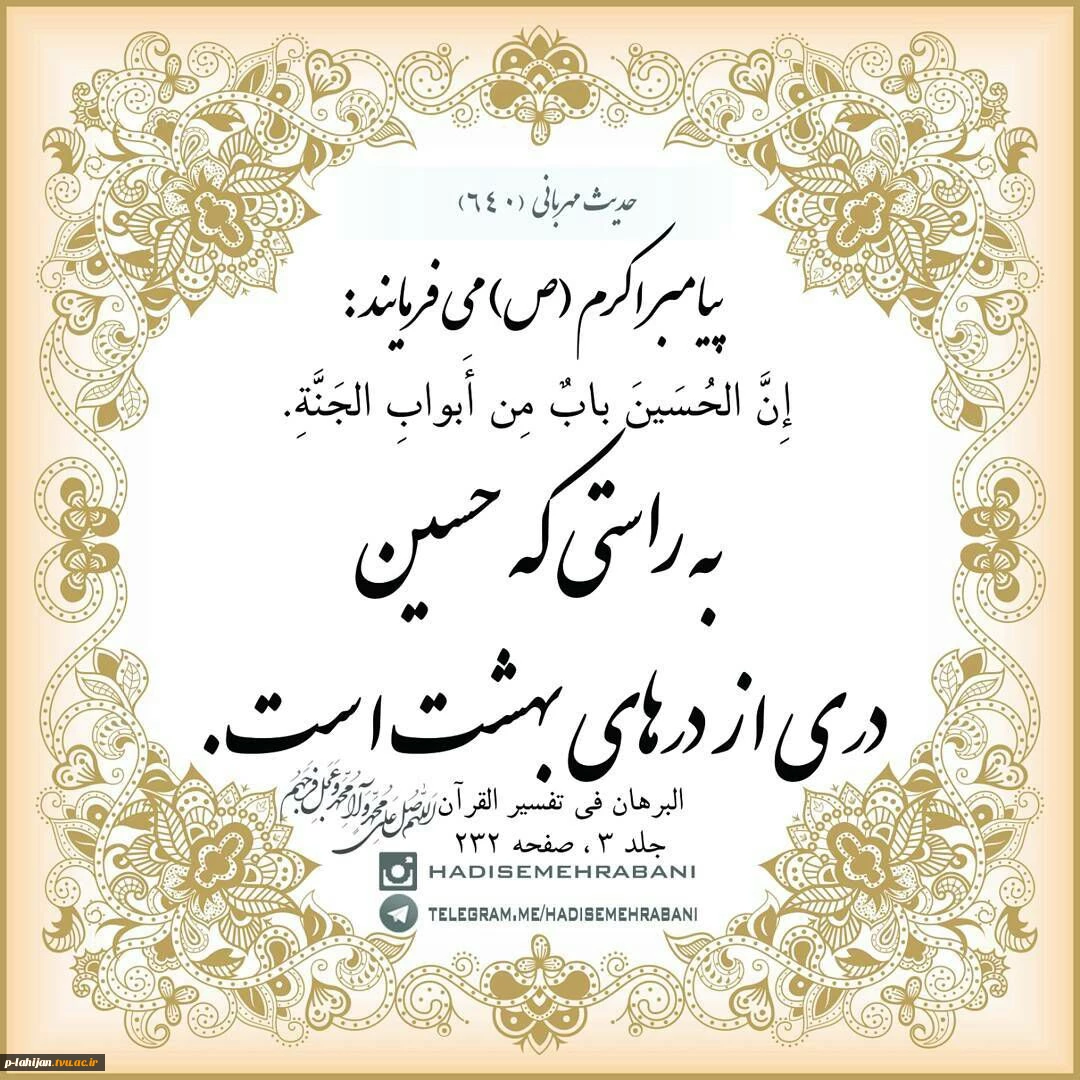 حدیث مهربانی (٦٤٠)
پیامبر اکرم (ص) می فرمایند:
إِنَّ الحُسَینَ بابٌ مِن أَبوابِ الجَنَّةِ.
به راستی که حسین
دری از درهای بهشت است.
البرهان فی تفسیر القرآن
اللهم صل علی محمد و آل محمد و عجل فرجهم
جلد ۳ ، صفحه ۲۳۲
HADISEMEHRABANI
TELEGRAM.ME/HADISEMEHRABANI
p-lahijan.tvu.ac.ir